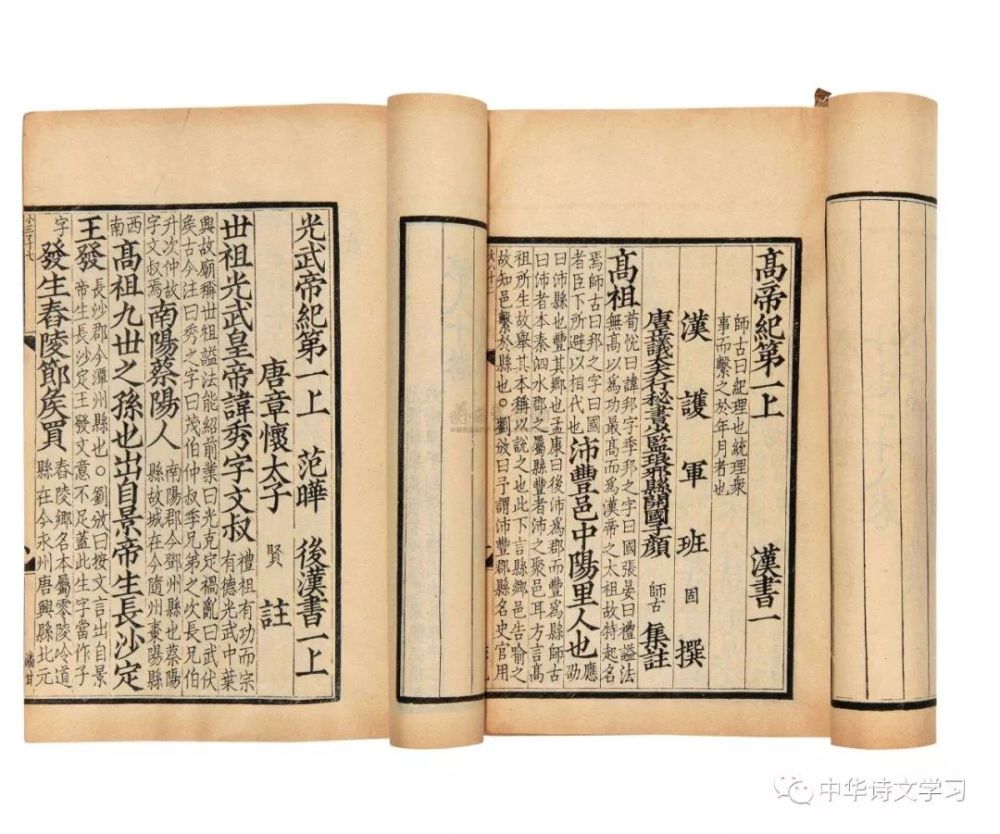 髙帝紀第一上 漢書一
師古曰紀理也統理衆
事而繫之於年月者也
漢護軍班固撰
唐正議大夫行秘書少監琅邪縣開國子顏師古集註
髙祖 荀恱曰諱邦字季邦之字曰國張晏曰禮謚法
無髙以爲功最髙而爲漢帝之太祖故特起名
焉師古曰邦之字曰國
者臣下所避以相代也
沛豐邑中陽里人也 應劭
曰沛縣也豐其鄉也孟康曰後沛爲郡而豐爲縣師古
曰沛者本秦泗水郡之屬縣豐者沛之聚邑耳方言髙
祖所生故舉其本稱以說之也此下言縣鄉邑告喻之
故知邑繫於縣也。劉攽曰予謂沛豐郡縣名史官用
光武帝紀第一上 范曄 後漢書一上
唐章懷太子賢註
世祖光武皇帝諱秀字文叔 禮祖有功而宗
有德光武中葉
興故廟稱世祖謚法能紹前業曰光克定禍亂曰武伏
侯古今注曰秀之字曰茂伯仲叔季兄弟之次長兄伯
升次仲故
字文叔焉
南陽蔡陽人 南陽郡今鄧州縣也蔡陽
縣故城在今隨州棗陽縣
西
南
髙祖九世之孫也出自景帝生長沙定
王發 長沙郡今潭州縣也。劉攽曰按文言出自景
帝生長沙定王發文意不足蓋此生字當作子
字 發生舂陵節侯買 舂陵鄉名本屬零陵泠道
縣在今永州唐興縣北元
中华诗文学习